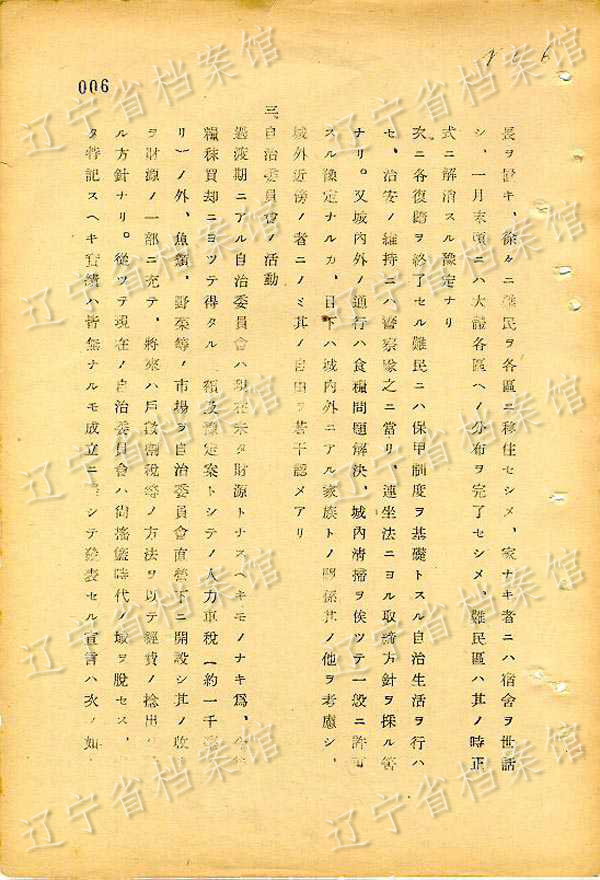 206
006
長ヲ置キ、徐々ニ難民ヲ各區ニ移住セシメ、家ナキ者ニハ宿舍ヲ世話
シ、一月末頃ニハ大體各區ヘノ分布ヲ完了セシメ、難民區ハ其ノ時正
式ニ解消スル豫定ナリ
次ニ各復歸ヲ終了セル難民ニハ保甲制度ヲ基礎トスル自治生活ヲ行ハ
セ、治安ノ維持ニハ警察隊之ニ當リ、連坐法ニヨル取締方針ヲ採ル筈
ナリ。又城內外ノ通行ハ食糧問題解決、城內淸掃ヲ俟ツテ一般ニ許可
スル豫定ナルカ、目下ハ城內外ニアル家族トノ關係其ノ他ヲ考慮シ、
城外近傍ノ者ニノミ其ノ自由ヲ若干認メアリ
三、自治委員會ノ活動
過渡期ニアル自治委員會ハ現在未タ財源トナスヘキモノナキ爲、
糧秣買却ニヨツテ得タル 額及豫定案トシテノ人力車稅(約一千
リ)ノ外、魚類、野菜等ノ市場ヲ自治委員會直營下ニ開設シ其ノ收
ヲ財源ノ一部ニ充テ、將來ハ戶 稅等ノ方法ヲ以テ經費ノ捻出
ル方針ナリ。從ツテ現在ノ自治委員會ハ尙搖籃時代ノ域ヲ脫セス、
タ特記スヘキ實績ハ皆無ナルモ成立ニ シテ發表セル宣言ハ次ノ如
辽宁省档案馆
辽宁省档案馆
辽宁省档案馆
辽宁省档案馆
辽宁省档案馆
辽宁省档案馆
辽宁省档案馆
辽宁省档案馆